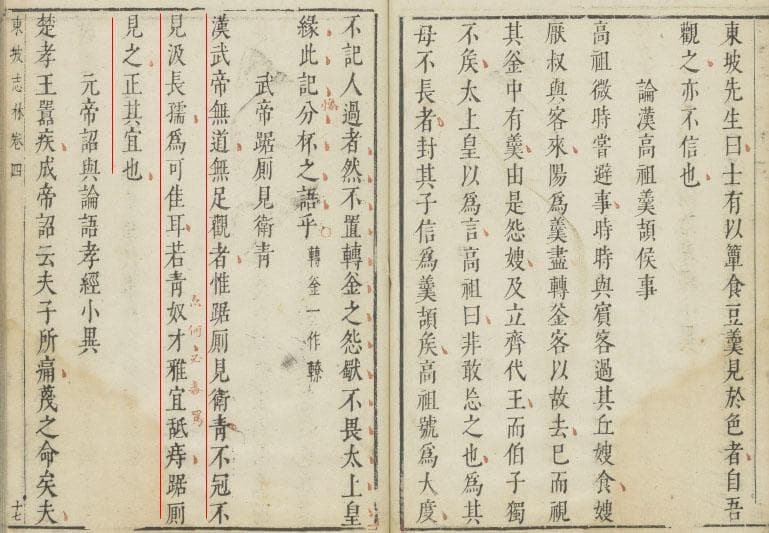 東坡先生曰士有以簞食豆羹見於色者自吾
觀之亦不信也
論漢高祖羹頡侯事
高祖微時嘗避事時時與賓客過其丘嫂食嫂
厭叔與客來陽為羹盡轑釜客以故去已而視
其釜中有羹由是怨嫂及立齊代王而伯子獨
不矦太上皇以為言高祖曰非敢忘之也為其
母不長者封其子信為羹頡矦高祖號為大度
不記人過者然不置轉釜之怨獻不畏太上皇
緣此記分杯之語乎
轉釜一作轑
武帝踞厠見衛青
漢武帝無道無足觀者惟踞厠見衛青不冠不
見汲長孺為可佳耳若青奴才雅宜舐痔踞厠
見之正其宜也
元帝詔與論語孝經小異
楚孝王囂疾成帝詔云夫子所痛蔑之命矣夫
東坡志林卷四
十七